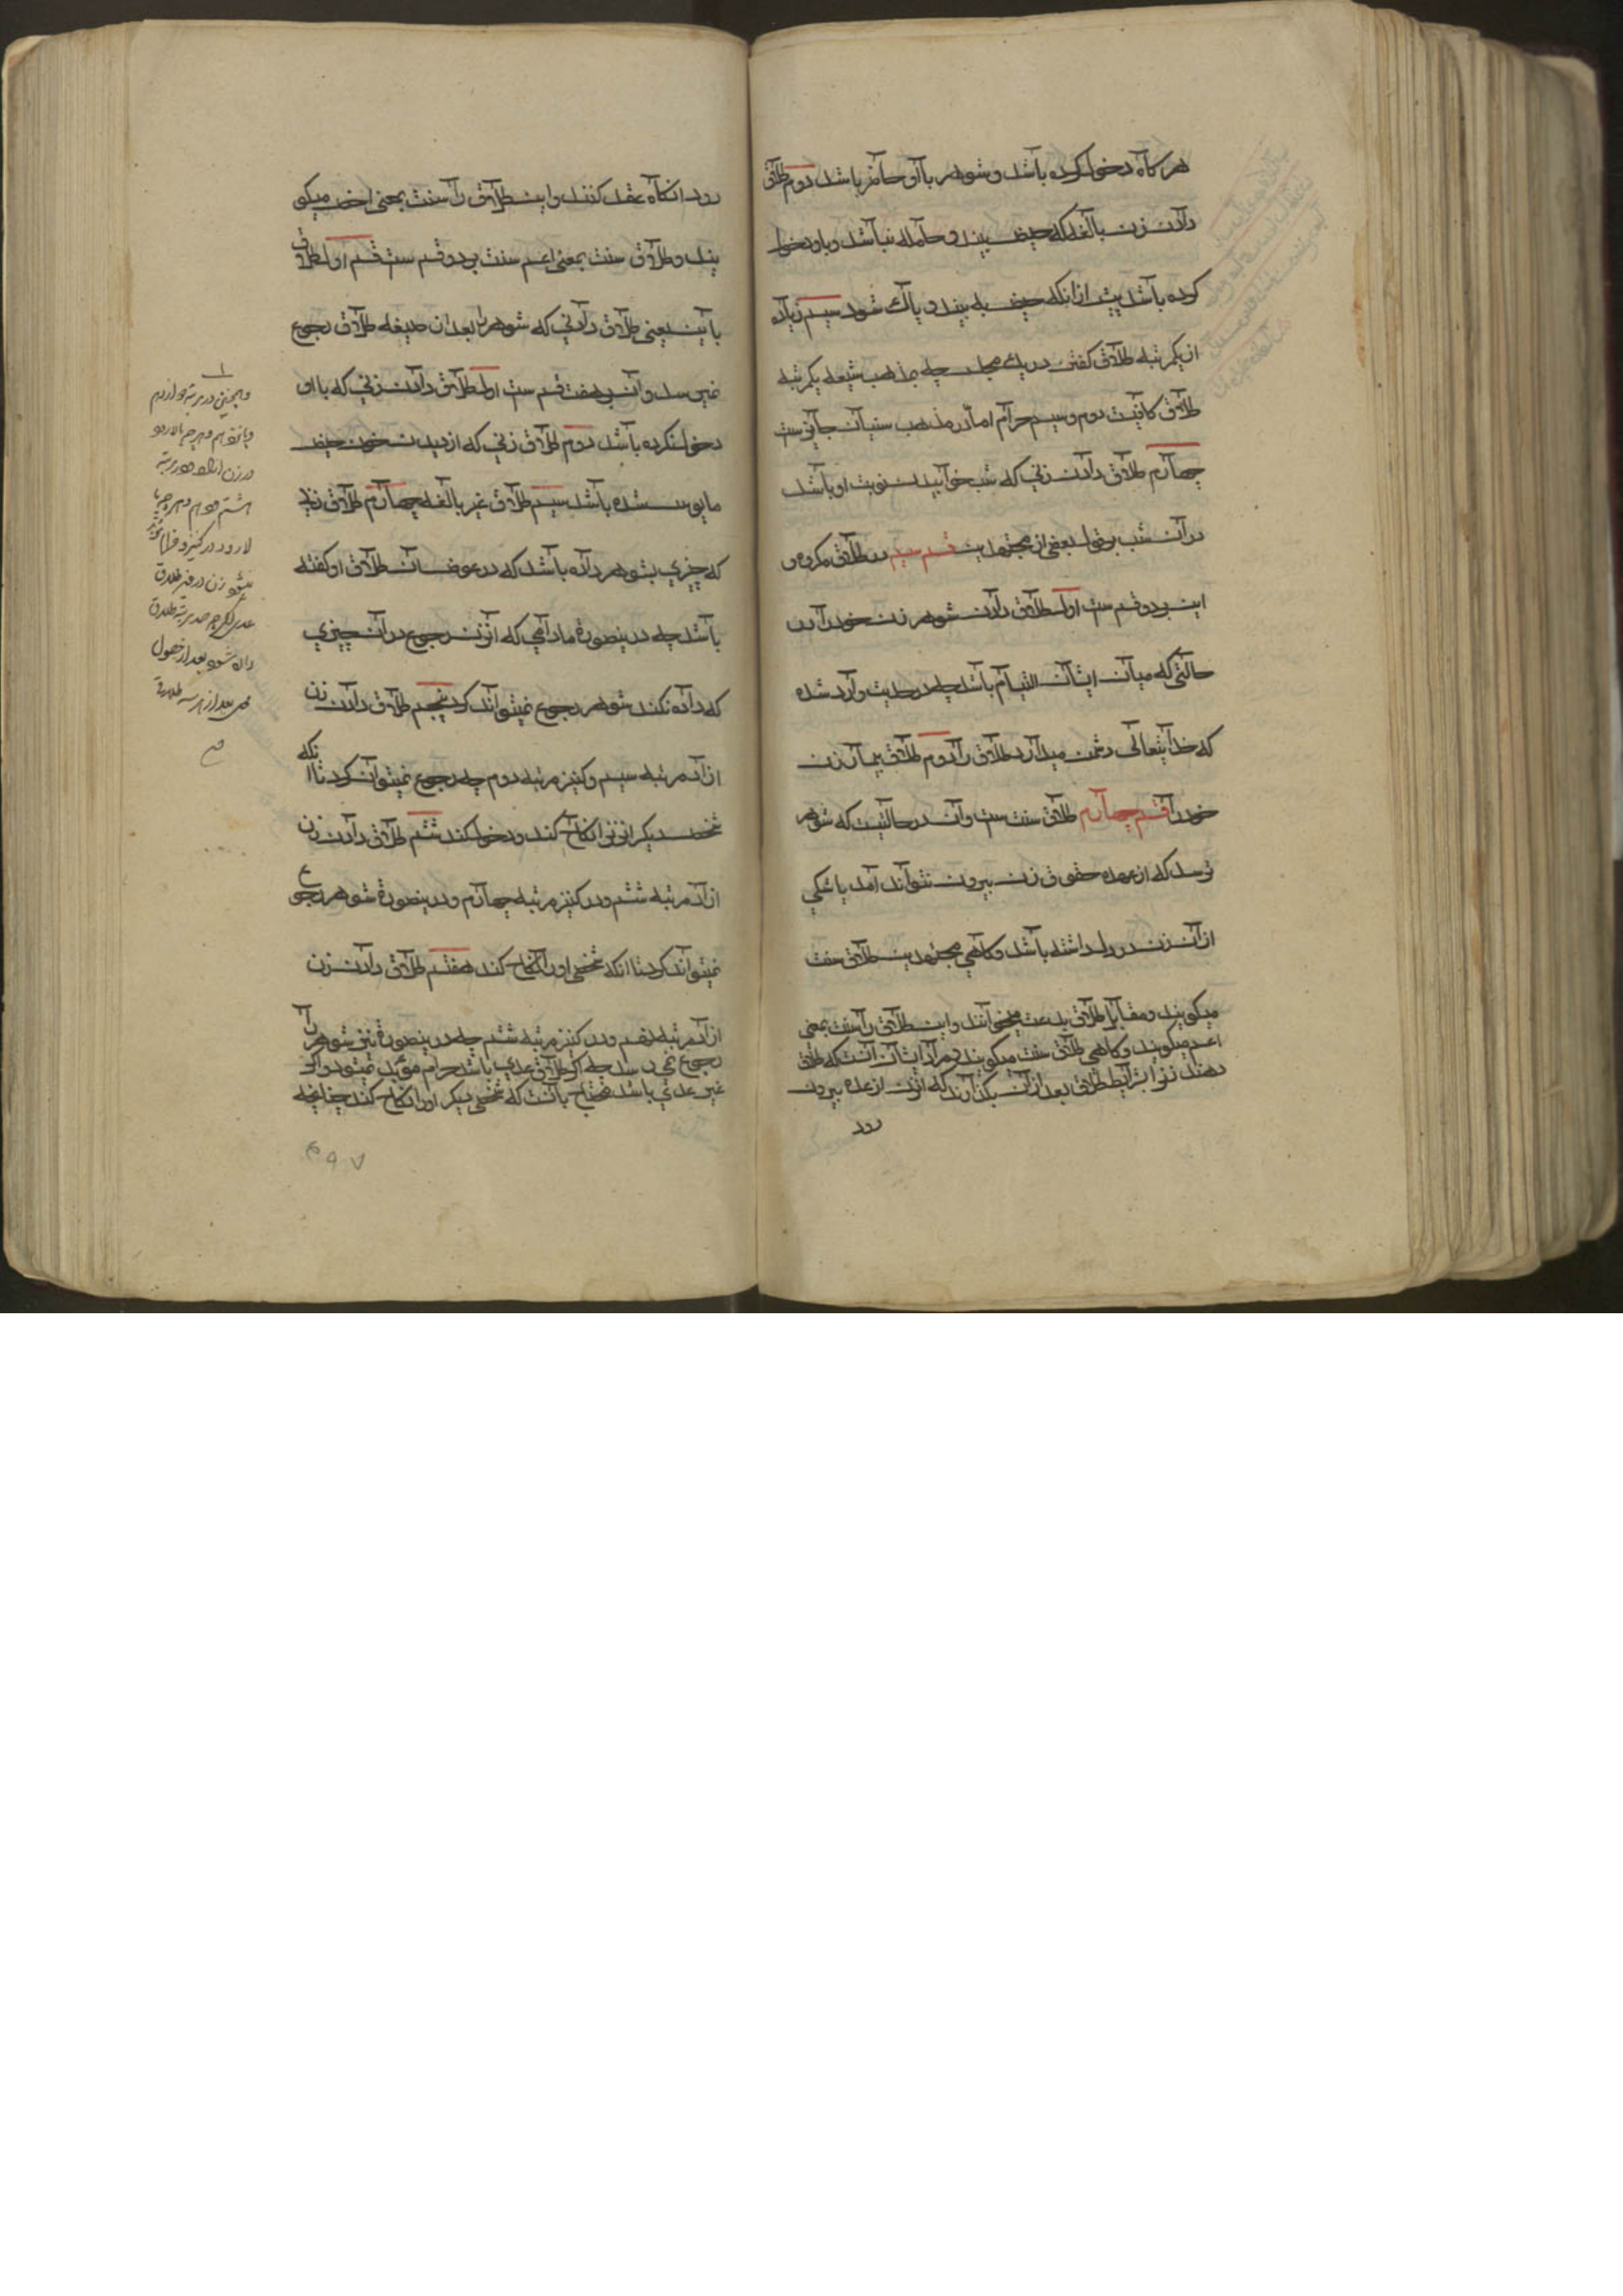 هرگاه دخول کرده باشد و شوهر باآو حاضر باشد دوم طلاق
دادن زن بالغه که حیض بیند و حامله نباشد و باو دخول
کرده باشد پیش ازانکه حیض به بیند و پاک شود سیم زیاده
از یکمرتبه طلاق گفتن در یک مجلس چه بمذهب شیعه یکمرتبه
طلاق کافیست دوم و سیم حرام اما در مذهب سنیان جایز ست
چهارم طلاق دادن زنی که شب خوابیدن نوبت او باشد
در آن شب بر قول بعضی از مجتهدین قسم سیم در طلاق مکروه و
این بر دو قسم ست اول طلاق دادن شوهر زن خود را در
حالتی که میان ایشان التیام باشد چه در حدیث وارد شده
که خدایتعالی دشمن میدارد طلاق را دوم طلاق بیمار زن
خود را قسم چهارم طلاق سنت ست و آن در حالتیست که شوهر
ترسد که از عهده حقوق زن بیرون نتواند آمد یا شکی
از آن زن در دل داشته باشد و گاهی مجتهدین طلاق سنت
میگویند و مقابل طلاق بدعت میخوانند و این طلاق را سنت بمعنی
اعم میگویند و گاهی طلاق سنت میگویند و مراد ایشان آنست که طلاق
دهند زنرا بشرایط طلاق بعد از آن بگذارند که آنزن از عده بیرون
رود
رود انگاه عقد کنند و این طلاق را سنت بمعنی اخص میگو
یند و طلاق سنت بمعنی اعم سنت بر دو قسم ست قسم اول طلاق
باین یعنی طلاق دادنی که شوهر را بعد از صیغه طلاق رجوع
نمیرسد و آن بر هفت قسم ست اول طلاق دادن زنی که با او
دخول نکرده باشد دوم طلاق زنی که از دیدن خون حیض
مایوس شده باشد سیم طلاق غیر بالغه چهارم طلاق زنی
که چیزی بشوهر داده باشد که در عوض آن طلاق او گفته
باشد چه درینصورة مادامی که آنزن رجوع در آن چیزی
که داده نکند شوهر رجوع نمیتواند کرد پنجم طلاق دادن زن
ازاد مرتبه سیم و کنیز مرتبه دوم چه رجوع نمیتوان کرد تا انکه
شخصی دیگر انزن را نکاح کند و دخول کند ششم طلاق دادن زن
ازاد مرتبه ششم و در کنیز مرتبه چهارم و درینصورة شوهر رجوع
نمیتواند کرد تا انکه شخصی او را نکاح کند هفتم طلاق دادن زن
ازاد مرتبه نهم و در کنیز مرتبه ششم چه درینصورة نیز شوهر را
رجوع نمیرسد چه اگر طلاق عدی باشد حرام مؤبد میشود و اگر
غیر عدی باشد محتاج بآنست که شخصی دیگر او را نکاح کند چنانچه
۴۹۷